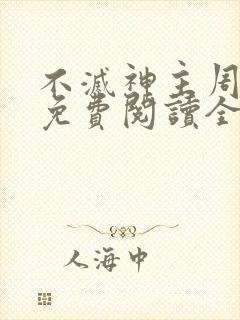 不滅神主周
免費閱讀全
人海中